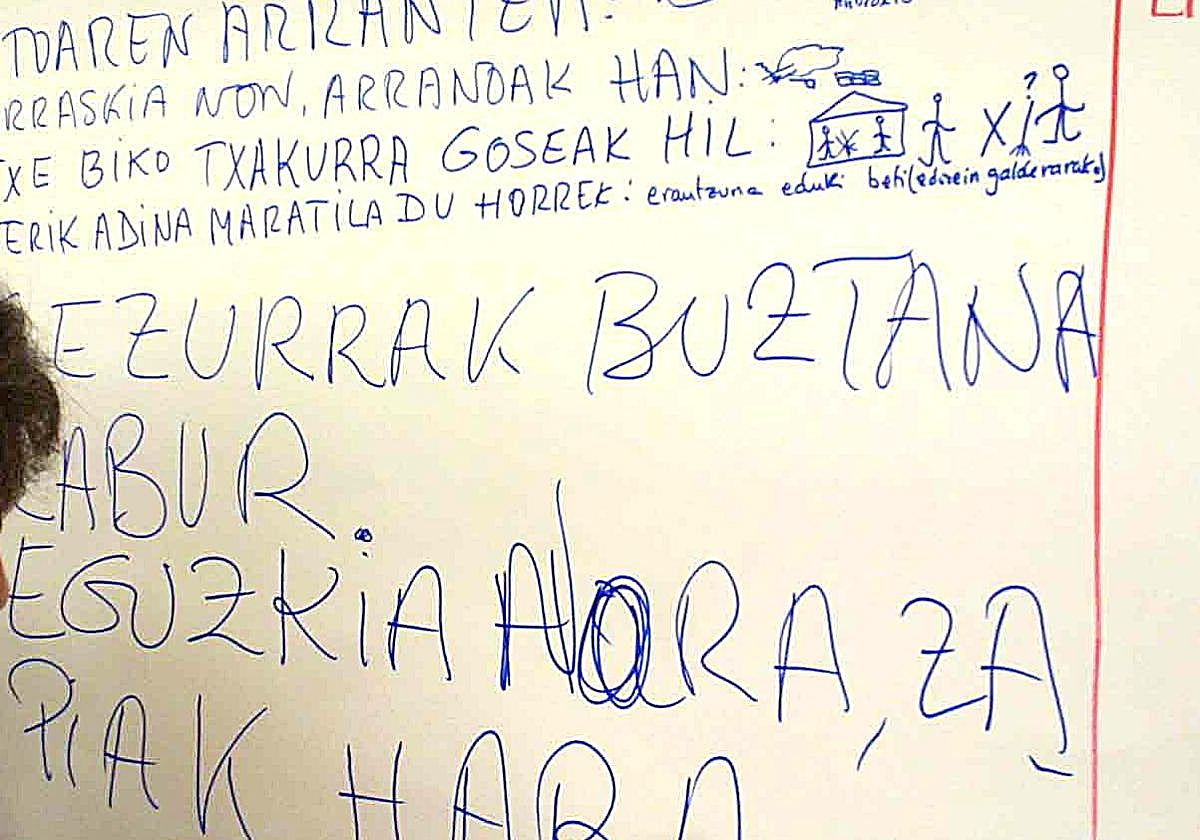 TOAREN ARRANTEN:
RRASKIA NON, ARRANOAK HAN:
TXE BIKO TXAKURRA GOSEAK HIL:
ERIK ADINA MARATILA DU HORREK: erantzuna eduki beti (edozein galderarako)
EZURRAK BUZTANA
LABUR.
EGUZKIA NORA, ZA
PIAK HARA